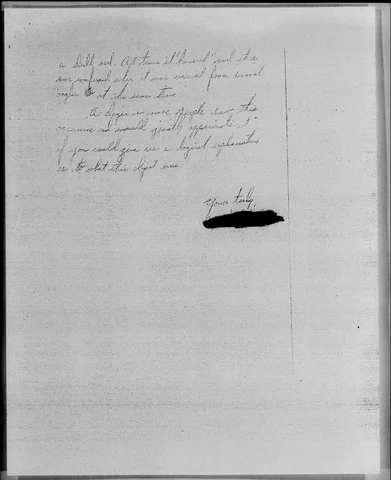 a dull red. At times it "hovered" and this
was confirmed when it was viewed from several
angles at the same time.
A dozen or more people saw this
occurence and would greatly appreciate it
if you could give us a logical explanation
as to what this object was.
Yours truly,